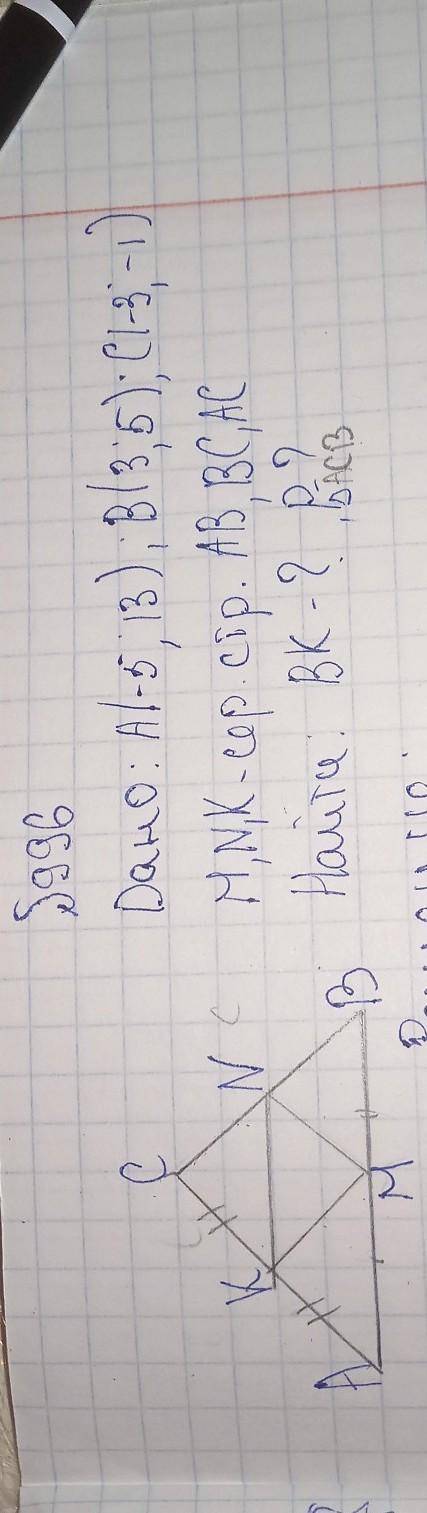 №996
Дано: A(-5; 13); B(3; 5); C(-3; -1)
M, N, K - сер. стр. AB, BC, AC
Найти: BK - ?
C
N
K
B
M
A